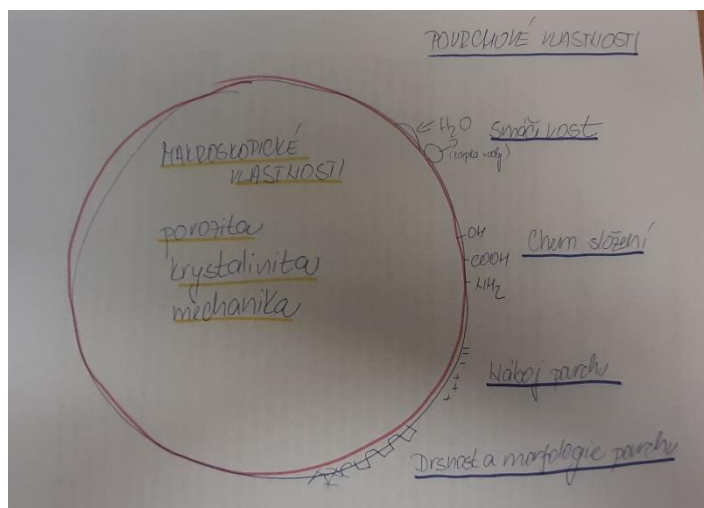 POVRCHOVÉ VLASTNOSTI
MAKROSKOPICKÉ
VLASTNOSTI
porozita
krystalinita
mechanika
H2O
(kapka vody)
Smáčivost
OH
COOH
NH2
Chem složení
Náboj povrchu
Drsnost a morfologie povrchu